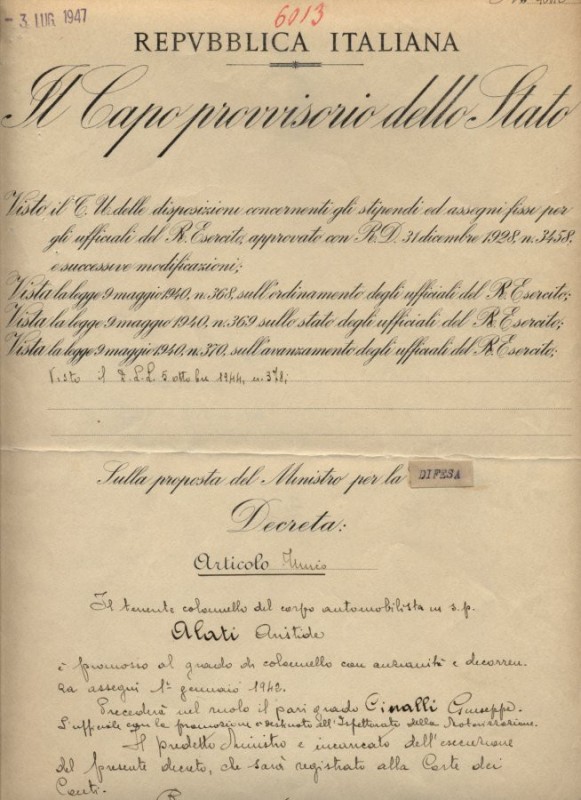 - 3 LUG. 1947
6013
REPVBBLICA ITALIANA
Il Capo provvisorio dello Stato
Visto il T. U. delle disposizioni concernenti gli stipendi ed assegni fissi per
gli ufficiali del R. Esercito, approvato con R. D. 31 dicembre 1928, n. 3458,
e successive modificazioni;
Vista la legge 9 maggio 1940, n. 368, sull'ordinamento degli ufficiali del R. Esercito;
Vista la legge 9 maggio 1940, n. 369 sullo stato degli ufficiali del R. Esercito;
Vista la legge 9 maggio 1940, n. 370, sull'avanzamento degli ufficiali del R. Esercito;
Visto il D.L.L. 5 ottobre 1944, n. 378;
Sulla proposta del Ministro per la DIFESA
Decreta:
Articolo Unico
Il tenente colonnello del corpo automobilista in s.p.
Alati Aristide
è promosso al grado di colonnello con anzianità e decorren.
za assegni 1° gennaio 1942.
Precederà nel ruolo il pari grado Cinalli Giuseppe.
L'ufficiale con la promozione è destinato all'Ispettorato della Motorizzazione.
Il predetto Ministro è incaricato dell'esecuzione
del presente decreto, che sarà registrato alla Corte dei
Conti.